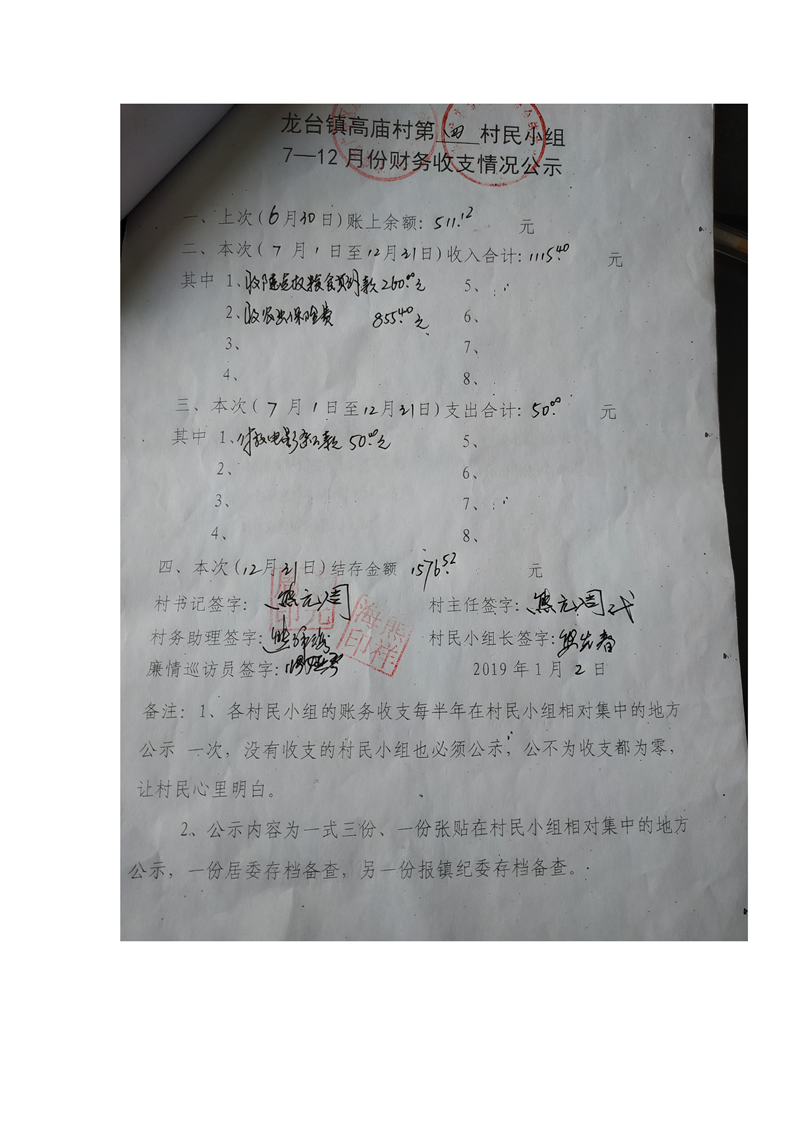 龙台镇高庙村第 四 村民小组
7—12月份财务收支情况公示
一、上次(6月30日)账上余额: 511.12 元
二、本次( 7 月 1 日至12月31日)收入合计: 1115.40 元
其中 1、收 款260.00元 5、
2、收农业保险费 855.40元 6、
3、 7、
4、 8、
三、本次( 7 月 1 日至12月31日)支出合计: 50.00 元
其中 1、付放电影 款 50.00元 5、
2、 6、
3、 7、
4、 8、
四、本次(12月31日)结存金额 1576.52 元
村书记签字: 熊元周 村主任签字: 熊元周代
村务助理签字: 村民小组长签字:
海熊印祥
廉情巡访员签字: 2019年1月 2 日
备注: 1、各村民小组的账务收支每半年在村民小组相对集中的地方
公示 一次，没有收支的村民小组也必须公示，公不为收支都为零，
让村民心里明白。
2、公示内容为一式三份、一份张贴在村民小组相对集中的地方
公示，一份居委存档备查，另一份报镇纪委存档备查。